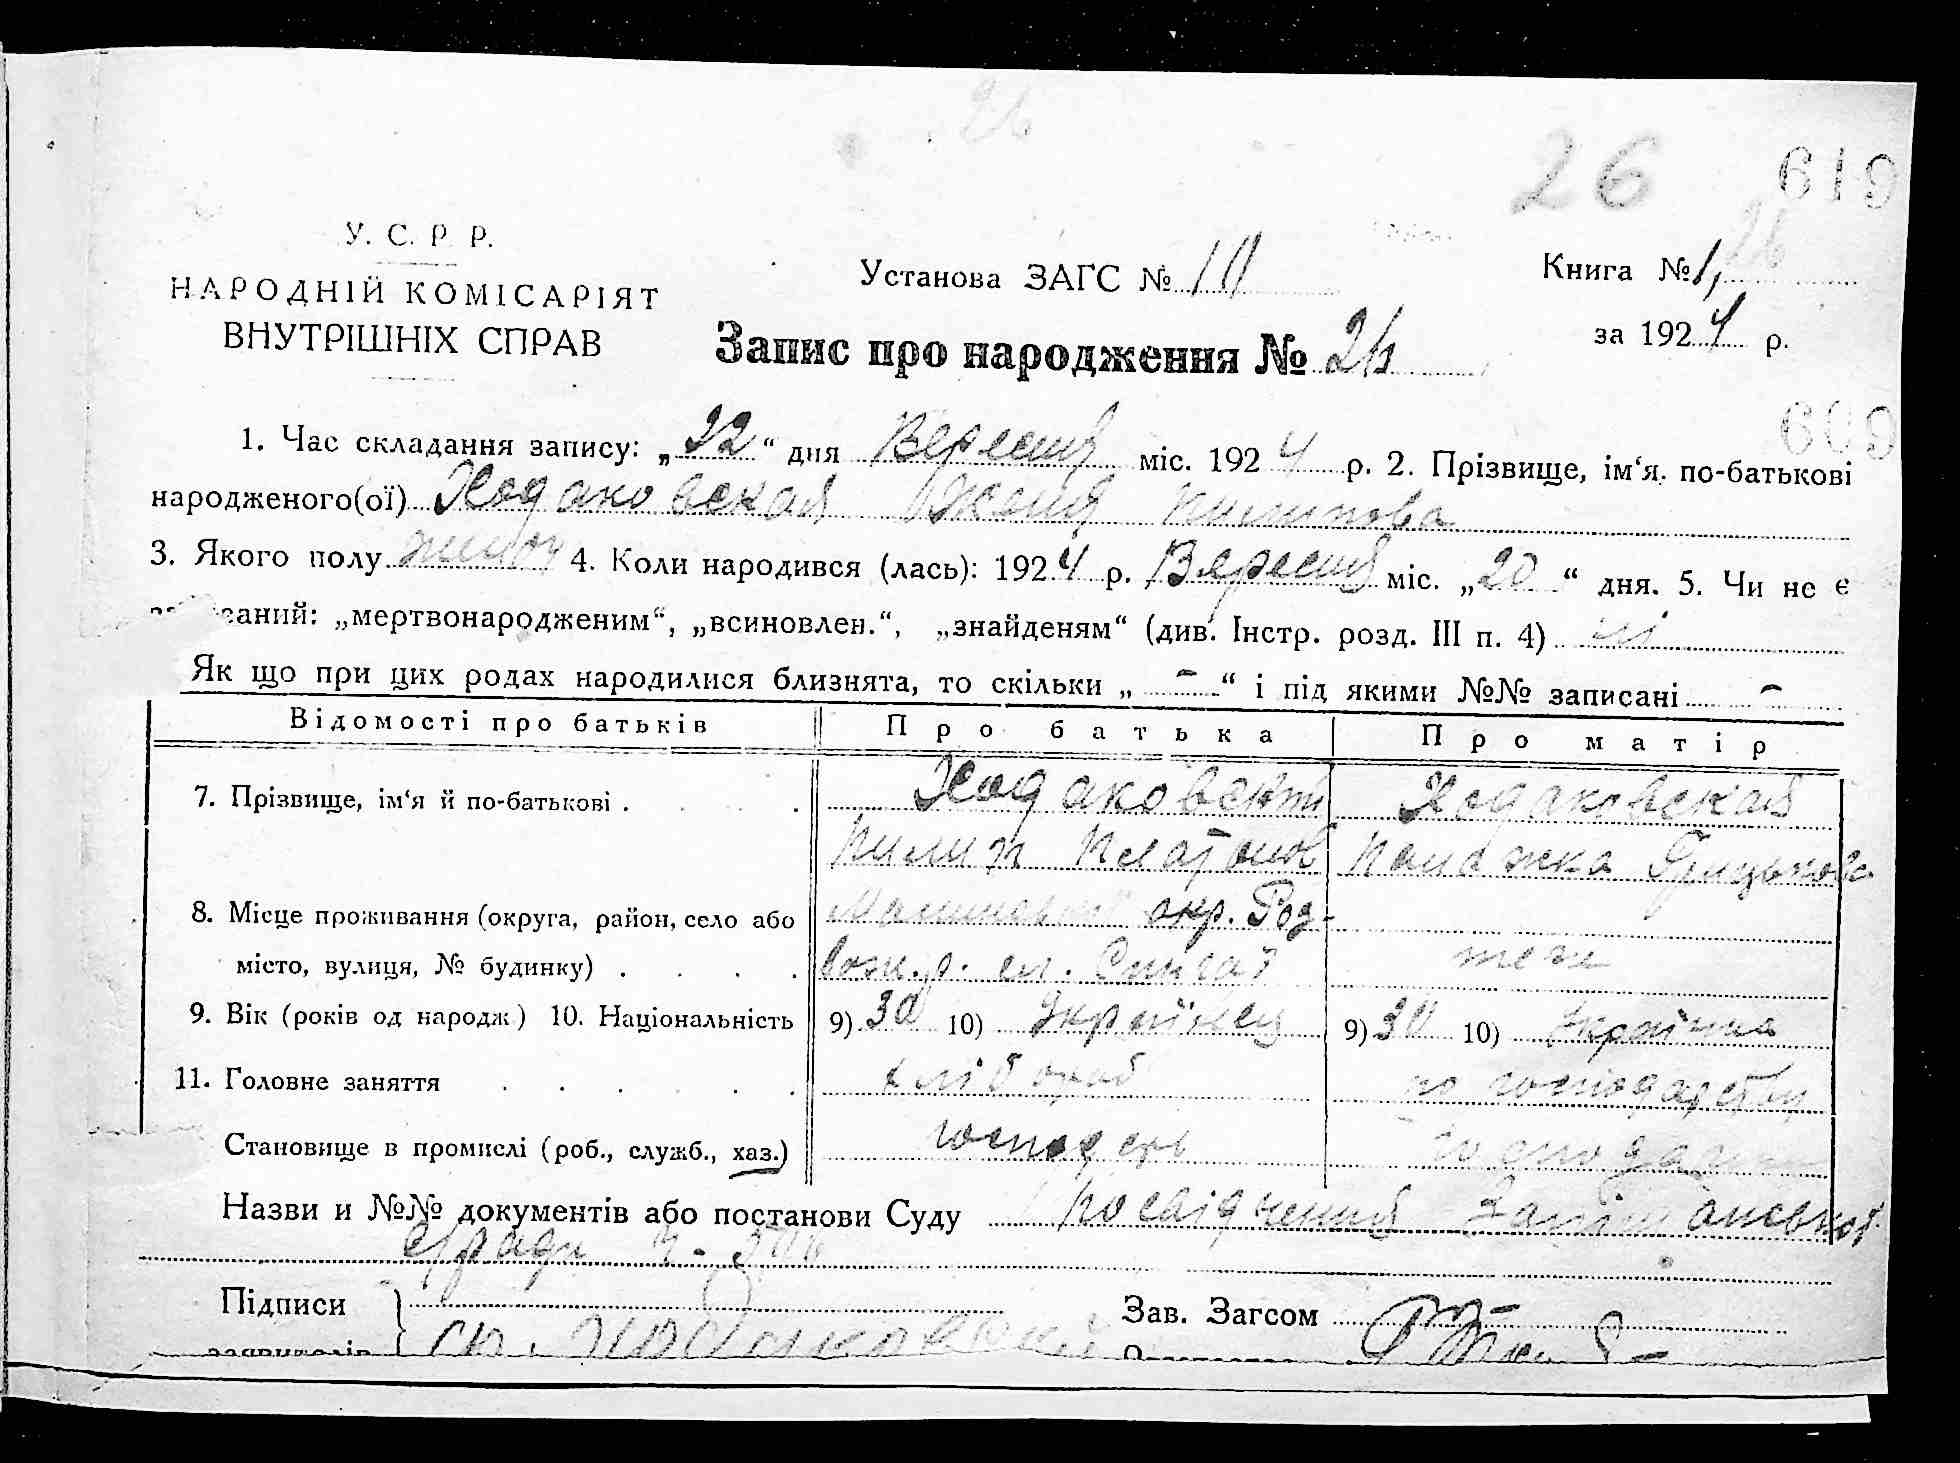 26
26 619
У. С. Р. Р.
НАРОДНІЙ КОМІСАРІЯТ
ВНУТРІШНІХ СПРАВ
Установа ЗАГС № 10
Книга № 1,
за 1924 р.
Запис про народження № 26
609
1. Час складання запису: „22“ дня Вересня міс. 1924 р. 2. Прізвище, ім‘я. по-батькові
народженого(ої) Ходаковская Женя Пилипова
3. Якого полу жіноч 4. Коли народився (лась): 1924 р. Вересня міс. „20“ дня. 5. Чи не є
заний: „мертвонародженим“, „всиновлен.“, „знайденям“ (див. Інстр. розд. III п. 4) ні
Як що при цих родах народилися близнята, то скільки „ - “ і під якими №№ записані -
Відомості про батьків Про батька Про матір
7. Прізвище, ім‘я й по-батькові . Ходаковский Ходаковская
Пилип Платонов
8. Місце проживання (округа, район, село або Малинської окр. Роз-
місто, вулиця, № будинку) . вож. р. теж
9. Вік (років од народж) 10. Національність 9) 30 10) Українец 9) 30 10) Українка
11. Головне заняття хлібороб по господарству
Становище в промислі (роб., служб., хаз.) господарь
Назви и №№ документів або постанови Суду Посвідчення
с/ради
Підписи Зав. Загсом
Ходаковский